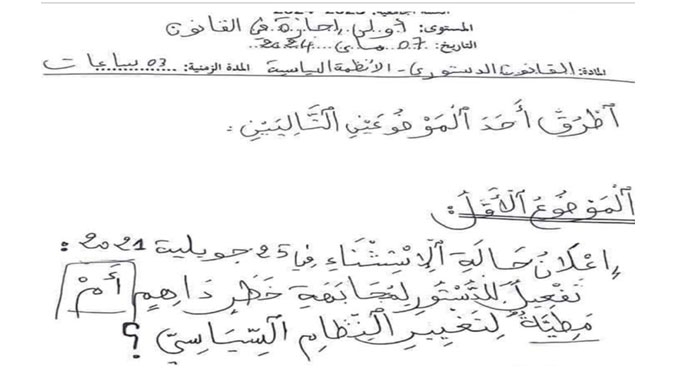 المستوى: أولى إجازة في القانون
التاريخ: ..07 ماي 2024..
المادة: القانون الدستوري - الأنظمة السياسية المدة الزمنية: 03 ساعات
اُطْرُقْ أَحَدَ اَلْمَوْضُوعَيْنِ اَلتَّالِيَيْنِ :
اَلْمَوْضُوعُ اَلْأَوَّلُ:
إِعْلَانُ حَالَةِ اَلْإِسْتِثْنَاءِ فِي 25 جويلية 2021 :
تَفْعِيلٌ لِلدُّسْتُورِ لِمُجَابَهَةِ خَطَرٍ دَاهِمٍ أَمْ
مَطِيَّةٌ لِتَغْيِيرِ اَلنِّظَامِ اَلسِّيَاسِيِّ ؟